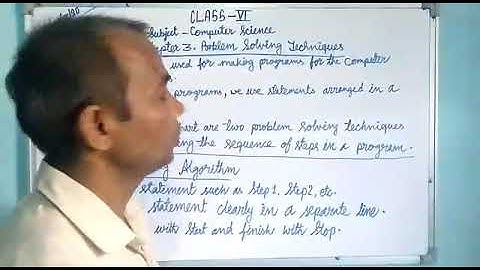 CLASS-VI
Subject - Computer Science
Chapter 3. Problem Solving Techniques
used for making programs for the computer
programs, we use statements arranged in a
are two problem solving techniques
the sequence of steps in a program.
Algorithm
statement such as Step 1, Step 2, etc.
statement clearly in a separate line.
with Start and finish with Stop.